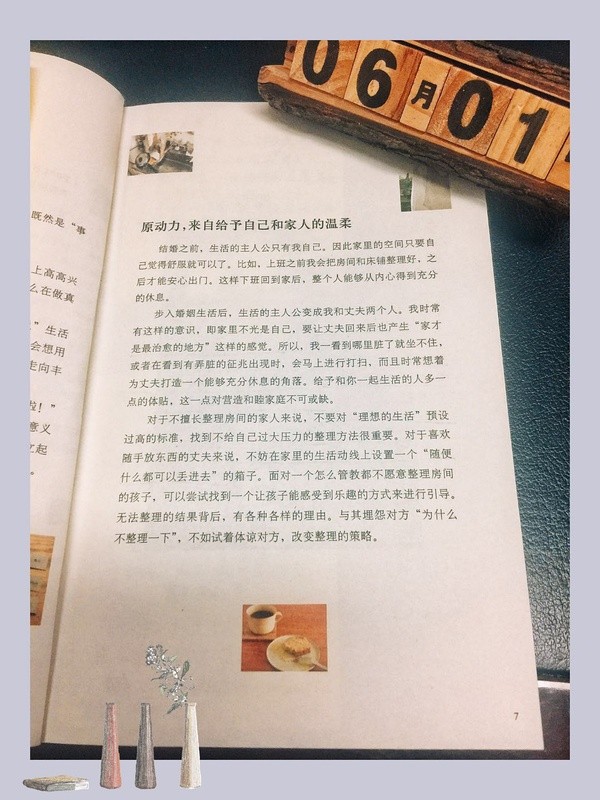 06月01
既然是“事
上高高兴
么在做真
”生活
会想用
走向丰
啦！”
意义
起
原动力，来自给予自己和家人的温柔
结婚之前，生活的主人公只有我自己。因此家里的空间只要自
己觉得舒服就可以了。比如，上班之前我会把房间和床铺整理好，之
后才能安心出门。这样下班回到家后，整个人能够从内心得到充分
的休息。
步入婚姻生活后，生活的主人公变成我和丈夫两个人。我时常
有这样的意识，即家里不光是自己，要让丈夫回来后也产生“家才
是最治愈的地方”这样的感觉。所以，我一看到哪里脏了就坐不住，
或者在看到有弄脏的征兆出现时，会马上进行打扫，而且时常想着
为丈夫打造一个能够充分休息的角落。给予和你一起生活的人多一
点的体贴，这一点对营造和睦家庭不可或缺。
对于不擅长整理房间的家人来说，不要对“理想的生活”预设
过高的标准，找到不给自己过大压力的整理方法很重要。对于喜欢
随手放东西的丈夫来说，不妨在家里的生活动线上设置一个“随便
什么都可以丢进去”的箱子。面对一个怎么管教都不愿意整理房间
的孩子，可以尝试找到一个让孩子能感受到乐趣的方式来进行引导。
无法整理的结果背后，有各种各样的理由。与其埋怨对方“为什么
不整理一下”，不如试着体谅对方，改变整理的策略。
7